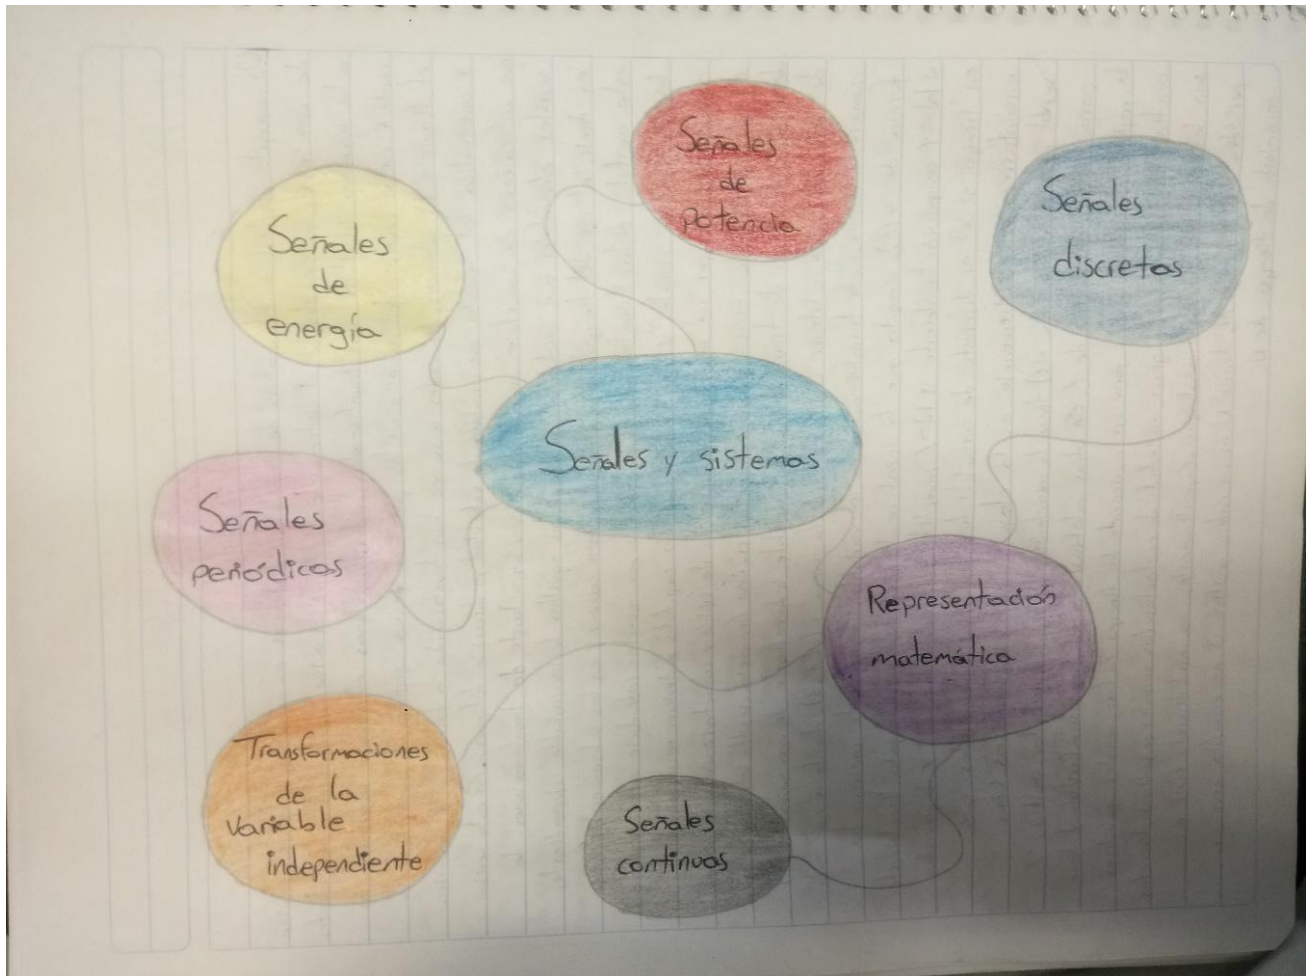 Señales
de
potencia
Señales
discretas
Señales
de
energía
Señales y sistemas
Señales
periódicas
Representación
matemática
Transformaciones
de la
variable
independiente
Señales
continuas